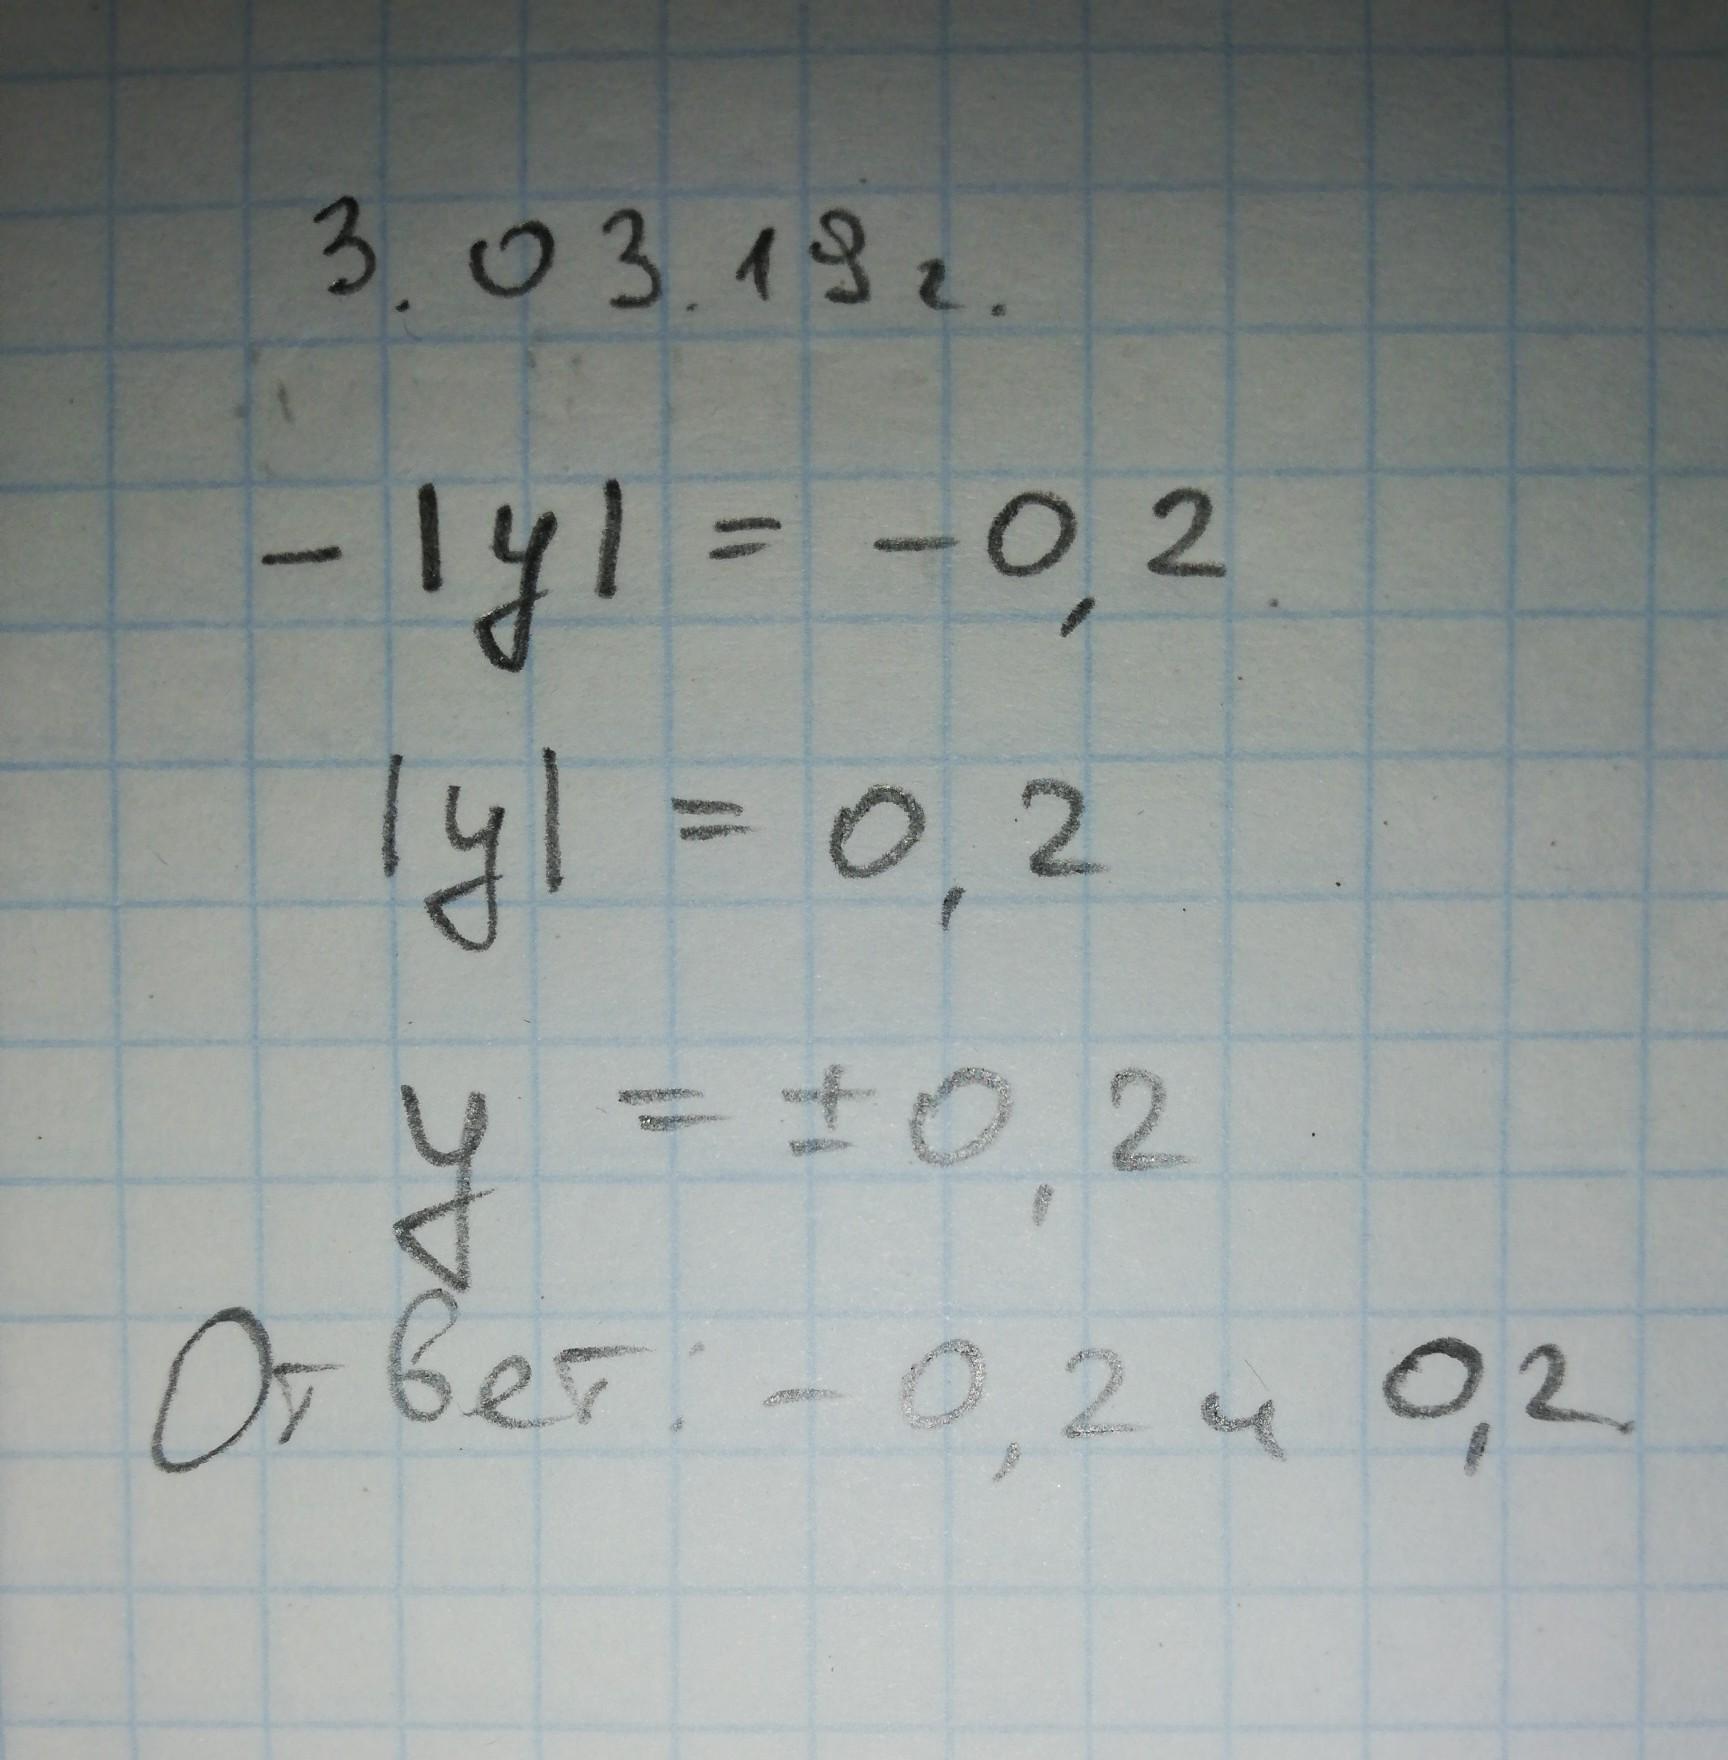 3.03.19г.
-|y| = -0,2
|y| = 0,2
y = ±0,2
Ответ: -0,2 и 0,2